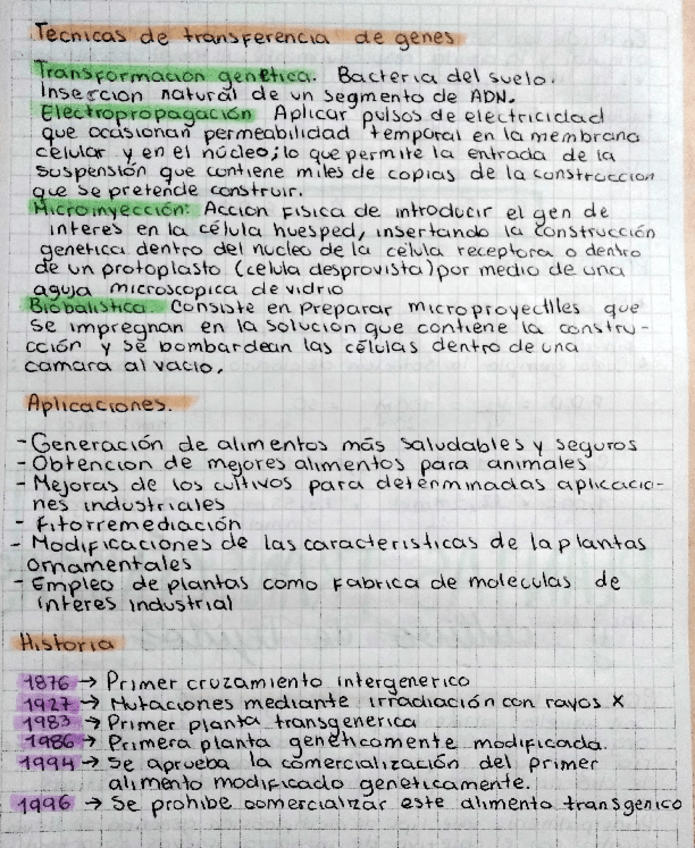 Tecnicas de transferencia de genes
Transformacion genetica. Bacteria del suelo.
Insercion natural de un segmento de ADN.
Electropropagación Aplicar pulsos de electricidad
que ocasionan permeabilidad temporal en la membrana
celular y en el núcleo; lo que permite la entrada de la
suspensión que contiene miles de copias de la construccion
que se pretende construir.
Microinyección: Accion Fisica de introducir el gen de
interes en la célula huesped, insertando la construcción
genetica dentro del nucleo de la celula receptora o dentro
de un protoplasto (celula desprovista) por medio de una
aguja microscopica de vidrio
Biobalistica. Consiste en Preparar microproyectiles que
se impregnan en la solucion que contiene la constru-
cción y se bombardean las células dentro de una
camara al vacio.
Aplicaciones.
- Generación de alimentos más saludables y seguros
- Obtencion de mejores alimentos para animales
- Mejoras de los cultivos para determinadas aplicacio-
nes industriales
- Fitorremediación
- Modificaciones de las caracteristicas de la plantas
ornamentales
- Empleo de plantas como Fabrica de moleculas de
interes industrial
Historia
1876 → Primer cruzamiento intergenerico
1927 → Mutaciones mediante irradiación con rayos X
1983 → Primer planta transgenerica
1986 → Primera planta geneticamente modificada.
1994 → Se aprueba la comercialización del primer
alimento modificado geneticamente.
1996 → Se prohibe comercializar este alimento transgenico